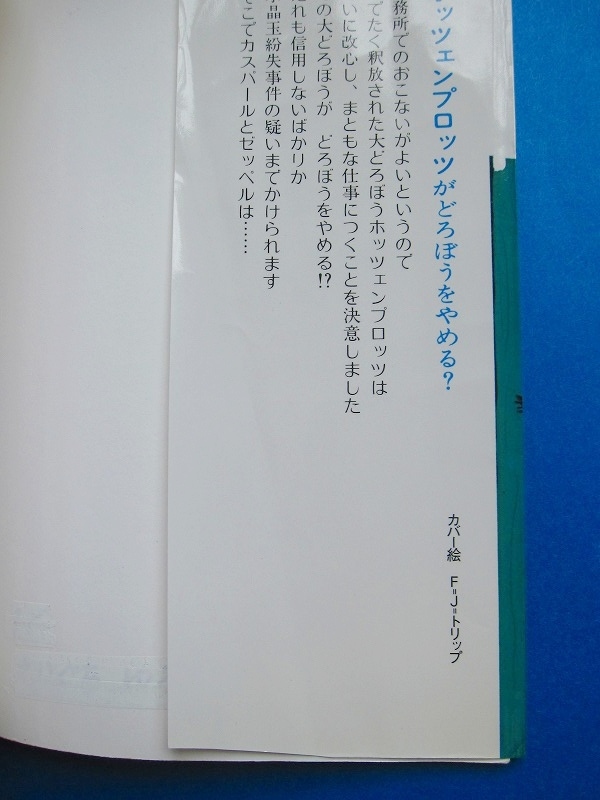 ッツェンプロッツがどろぼうをやめる?
務所でのおこないがよいというので
でたく釈放された大どろぼうホッツェンプロッツは
いに改心し、まともな仕事につくことを決意しました
の大どろぼうが どろぼうをやめる!?
れも信用しないばかりか
晶玉紛失事件の疑いまでかけられます
こでカスパールとゼッペルは……
カバー絵 F=J=トリップ